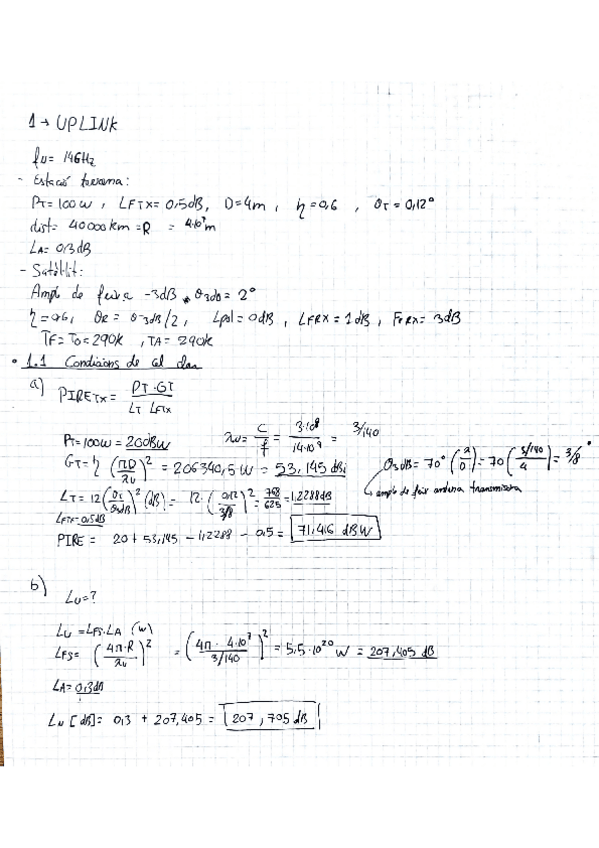 1 → UPLINK
fu = 14GHz
- Estació terrena:
PT=100W , LFTX= 0,5dB, D=4m , η=0,6 , θT = 0,12°
dist= 40000km =R = 4·10⁷m
LA= 0,3dB
- Satèl·lit:
Ample de feix a -3dB θ3dB = 2°
η=0,6, θR = θ3dB/2 , Lpol=0dB , LFRX=1dB , FRX= 3dB
TF=T0=290K , TA= 290K
• 1.1 Condicions de cel clar
a) PIRETX = PT·GT / LT LFTX
PT=100W = 20dBW
λu= c/f = 3·10⁸/14·10⁹ = 3/140
GT= η (πD/λu)² = 206340,5 W = 53,145 dBi
θ3dB = 70° (λ/D) = 70 (3/140/4) = 3/8°
↳ ample de feix antena transmissora
LT = 12 (θT/θ3dB)² (dB) = 12·(0,12/3/8)² = 768/625 = 1,2288dB
LFTX=0,5dB
PIRE = 20 + 53,145 - 1,2288 - 0,5 = 71,416 dBW
b) Lu=?
Lu = LFS·LA (W)
LFS= (4π·R/λu)² = (4π·4·10⁷/3/140)² = 5,5·10²⁰ W = 207,405 dB
LA= 0,3dB
Lu [dB]= 0,3 + 207,405 = 207,705 dB